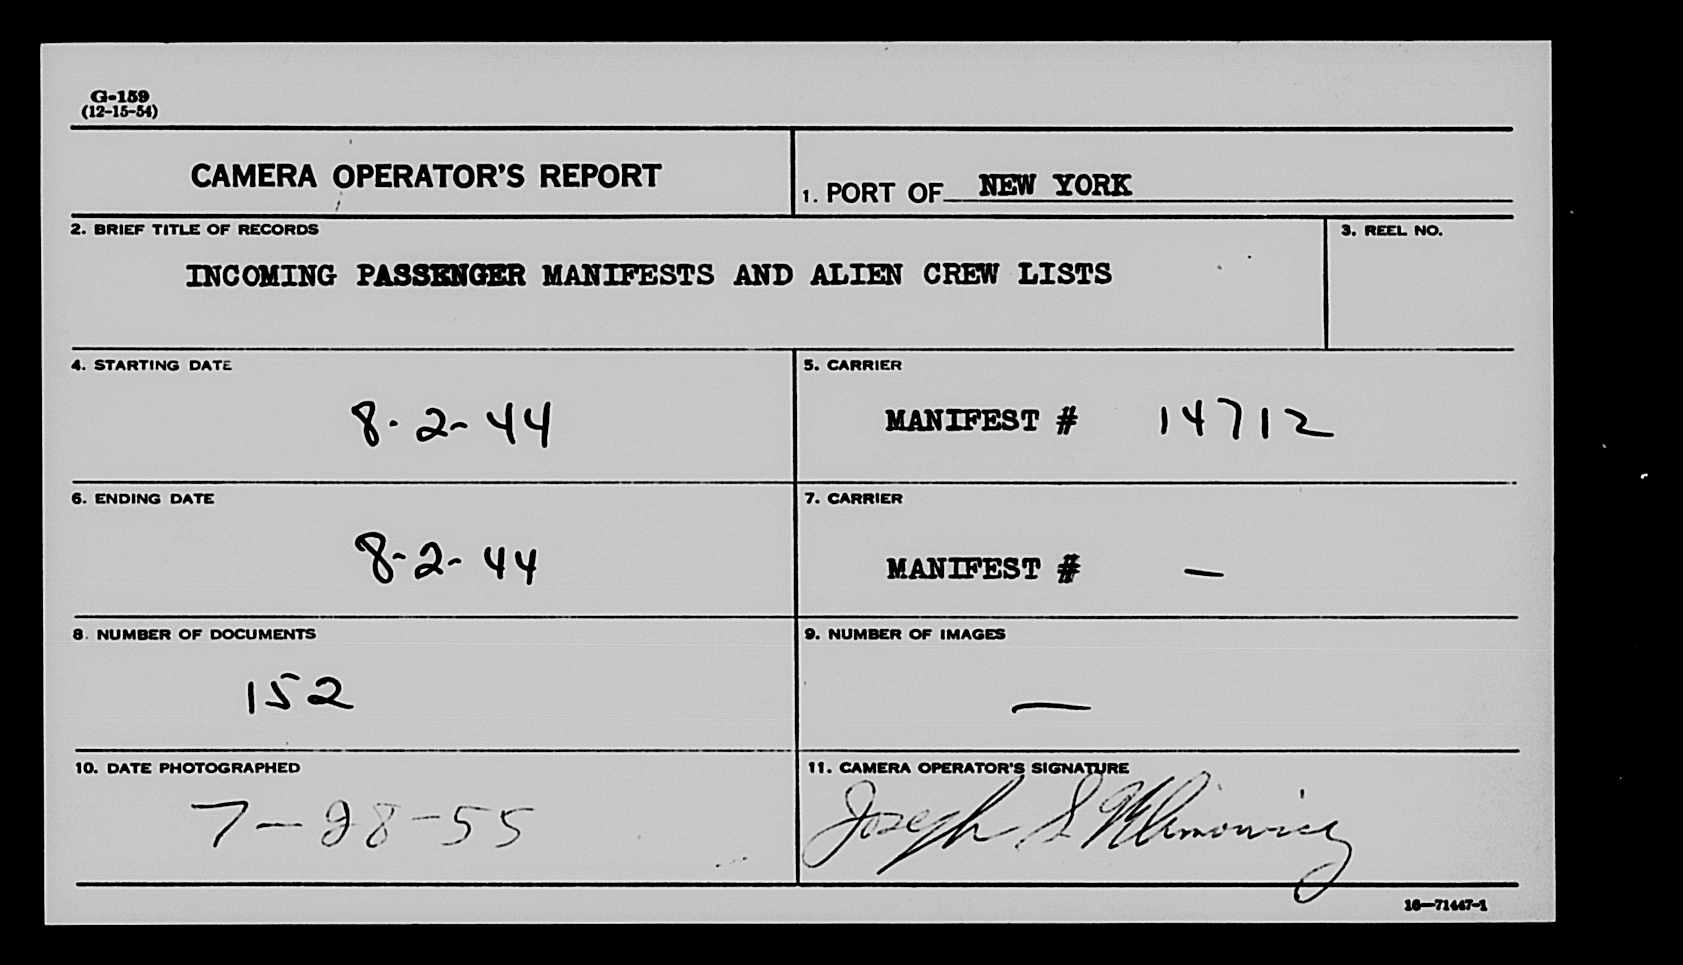 G-159
(12-15-54)
CAMERA OPERATOR'S REPORT
1. PORT OF NEW YORK
2. BRIEF TITLE OF RECORDS
INCOMING PASSENGER MANIFESTS AND ALIEN CREW LISTS
3. REEL NO.
4. STARTING DATE
8-2-44
5. CARRIER
MANIFEST # 14712
6. ENDING DATE
8-2-44
7. CARRIER
MANIFEST # —
8. NUMBER OF DOCUMENTS
152
9. NUMBER OF IMAGES
—
10. DATE PHOTOGRAPHED
7-28-55
11. CAMERA OPERATOR'S SIGNATURE
Joseph S
16—71447-1